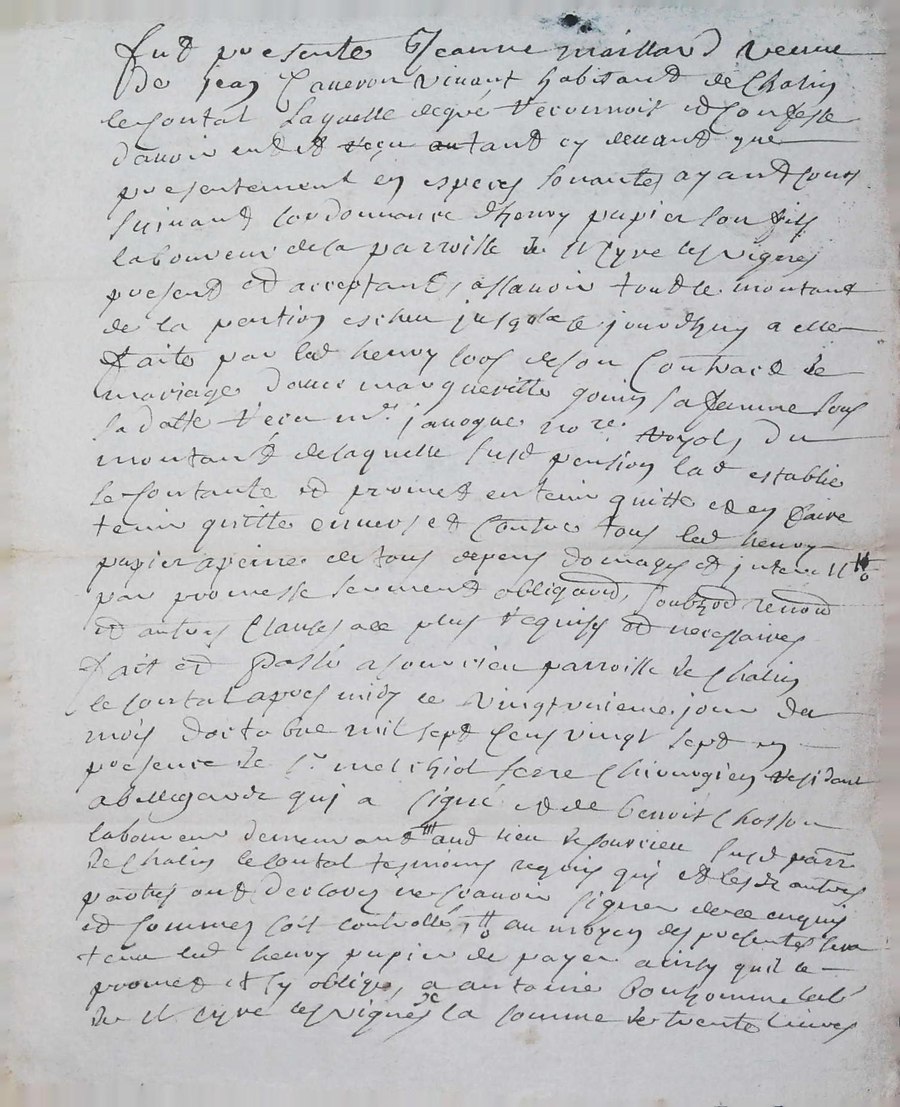 fut presente Jeanne maillard veuve
de jean Caveron vivant habitant de Chalin
le Contal laquelle degré reconnoit et Confesse
davoir eu et receu autant cy devant que
presentement en especes sonantes ayant Cours
suivant lordonnance dhenry papier son fils
laboureur de la parroisse de St Cyre les vignes
present et acceptant, assavoir tout le montant
de la pention escheu jusqua ce jourdhuy a elle
faite par led henry lors de son Contract de
mariage avec margueritte gouin sa femme sous
sa datte receu mr janoque nore royal, du
montant de laquelle susd pension lad establie
se Contante et promet en tenir quitte et en faire
tenir quitte envers et Contre tous led henry
papier apeine de tous depens domages et interests
par promesse serment obligaõn, soubzõn renoõn
et autres Clauses ace plus requises et necessaires
fait et Passé a souvrieu parroisse de Chalin
le Contal apres midy le vingtroisieme jour du
mois doctobre mil sept Cens vingt sept en
presence de sr melchiol serre Chirurgien residant
a bellegarde qui a signé et de benoit Chosson
laboureur demeurant aud lieu de souvrieu susd parre
de Chalin le Contal tesmoins requis qui et lesd autres
parties ont declarez ne scavoir signer de ce enquis
et sommez soit controllé, au moyen des presentes sera
tenu led henry papier de payer ainsy quil le
promet et sy oblige, a antoine bonhomme labr
de St Cyre les vignes la somme de trente livres